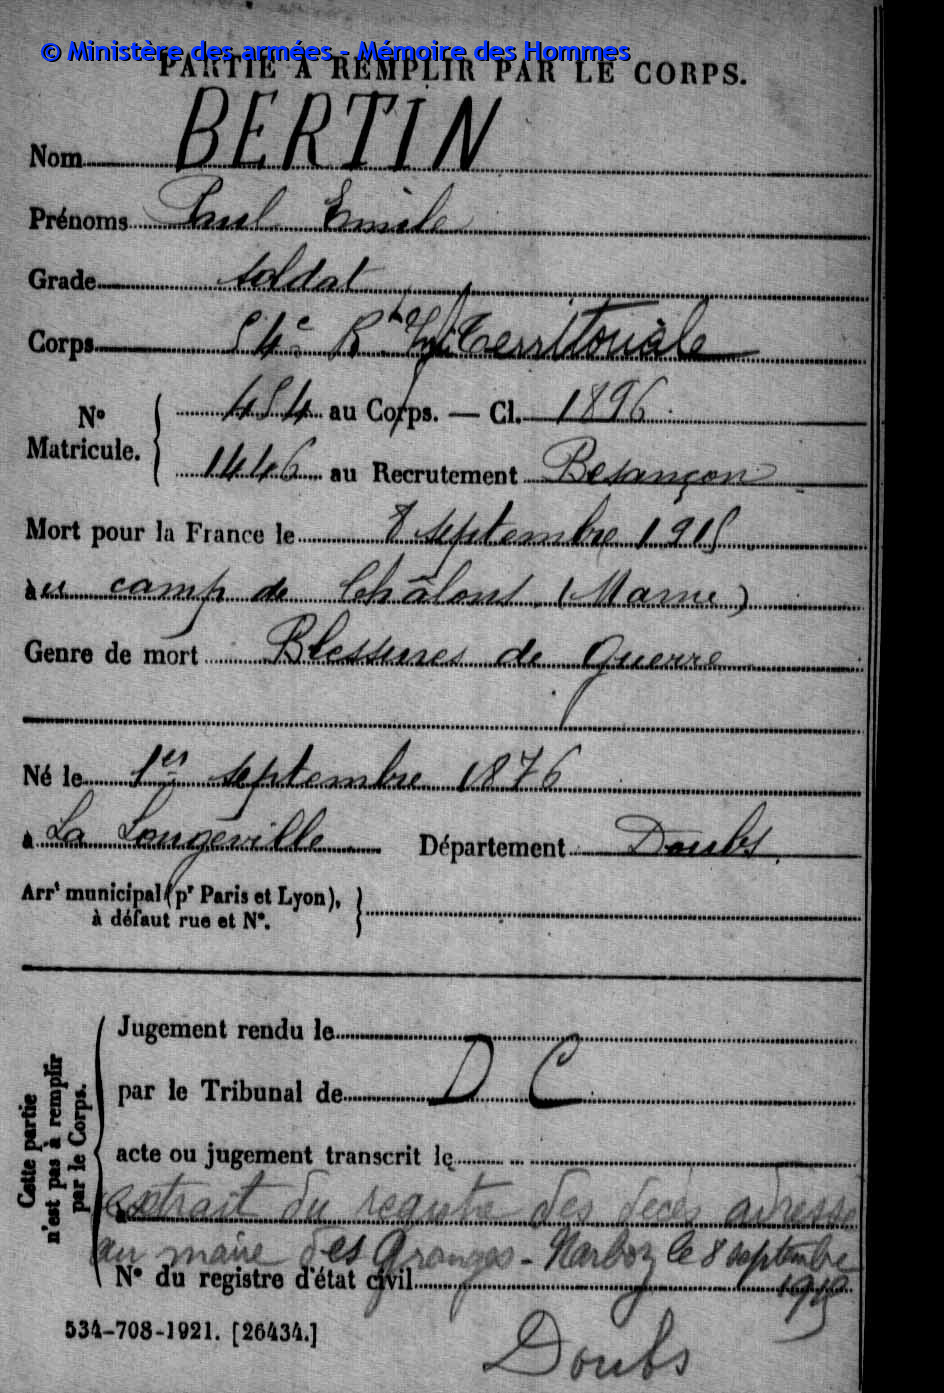 © Ministère des armées - Mémoire des Hommes
PARTIE À REMPLIR PAR LE CORPS.
Nom BERTIN
Prénoms Paul Emile
Grade soldat
Corps 54e Rt Inf Territoriale
No Matricule. { 454 au Corps. — Cl. 1896
1446 au Recrutement Besançon
Mort pour la France le 8 septembre 1915
au camp de Châlons (Marne)
Genre de mort Blessures de guerre
Né le 1er septembre 1876
à La Longeville Département Doubs
Arrt municipal (pr Paris et Lyon), à défaut rue et No. }
Cette partie n'est pas à remplir par le Corps.
Jugement rendu le
par le Tribunal de D C
acte ou jugement transcrit le
à extrait du registre des décès adressé
au maire des Granges-Narboz le 8 septembre
1915
No du registre d'état civil
534-708-1921. [26434.]
Doubs